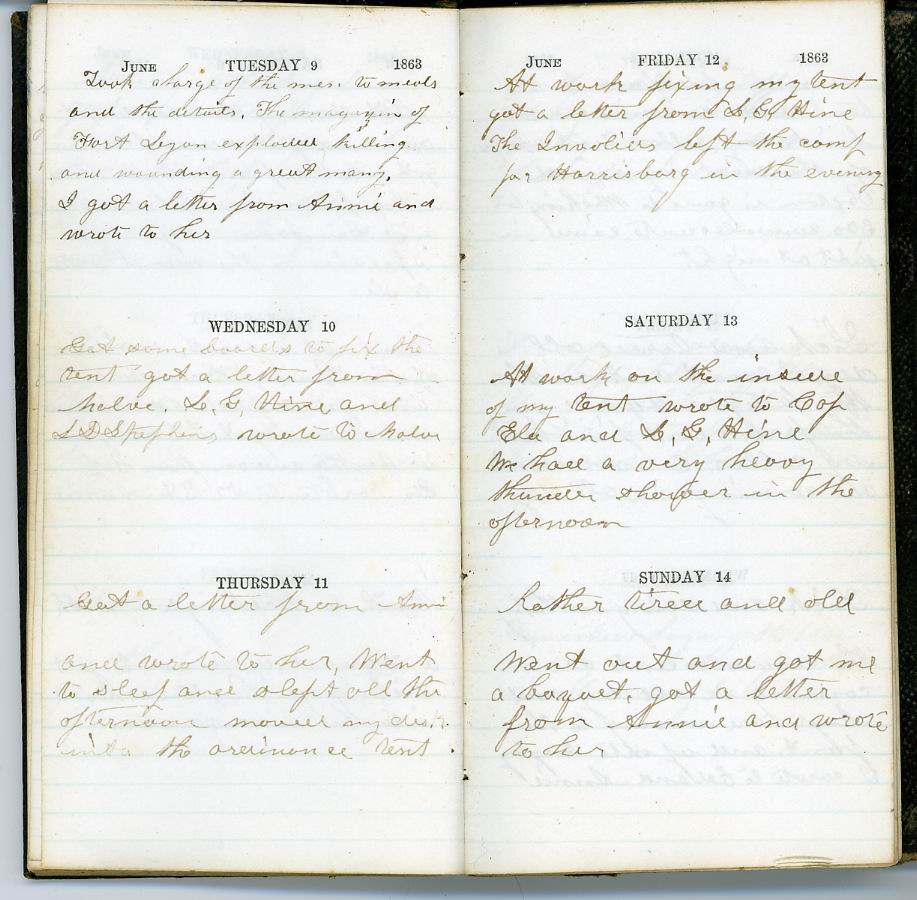 JUNE TUESDAY 9 1863
Took charge of the mes. to meals
and the details. The magazin of
Fort Lyon exploded killing
and wounding a great many.
I got a letter from Annie and
wrote to her
WEDNESDAY 10
Got some boards to fix the
tent got a letter from
L. G, Hine and
L D Stephens wrote to
THURSDAY 11
Got a letter from Anni
and wrote to her, Went
to sleep and slept all the
afternoon moved my desk
into the ordinance tent.
JUNE FRIDAY 12 1863
At work fixing my tent
got a letter from L, G, Hine
The Invalids left the camp
for Harrisburg in the evening
SATURDAY 13
At work on the inside
of my tent wrote to Cap
Ela and L, G, Hine
We had a very heavy
thunder shower in the
afternoon
SUNDAY 14
Rather tired and old
Went out and got me
a boquet. got a letter
from Annie and wrote
to her